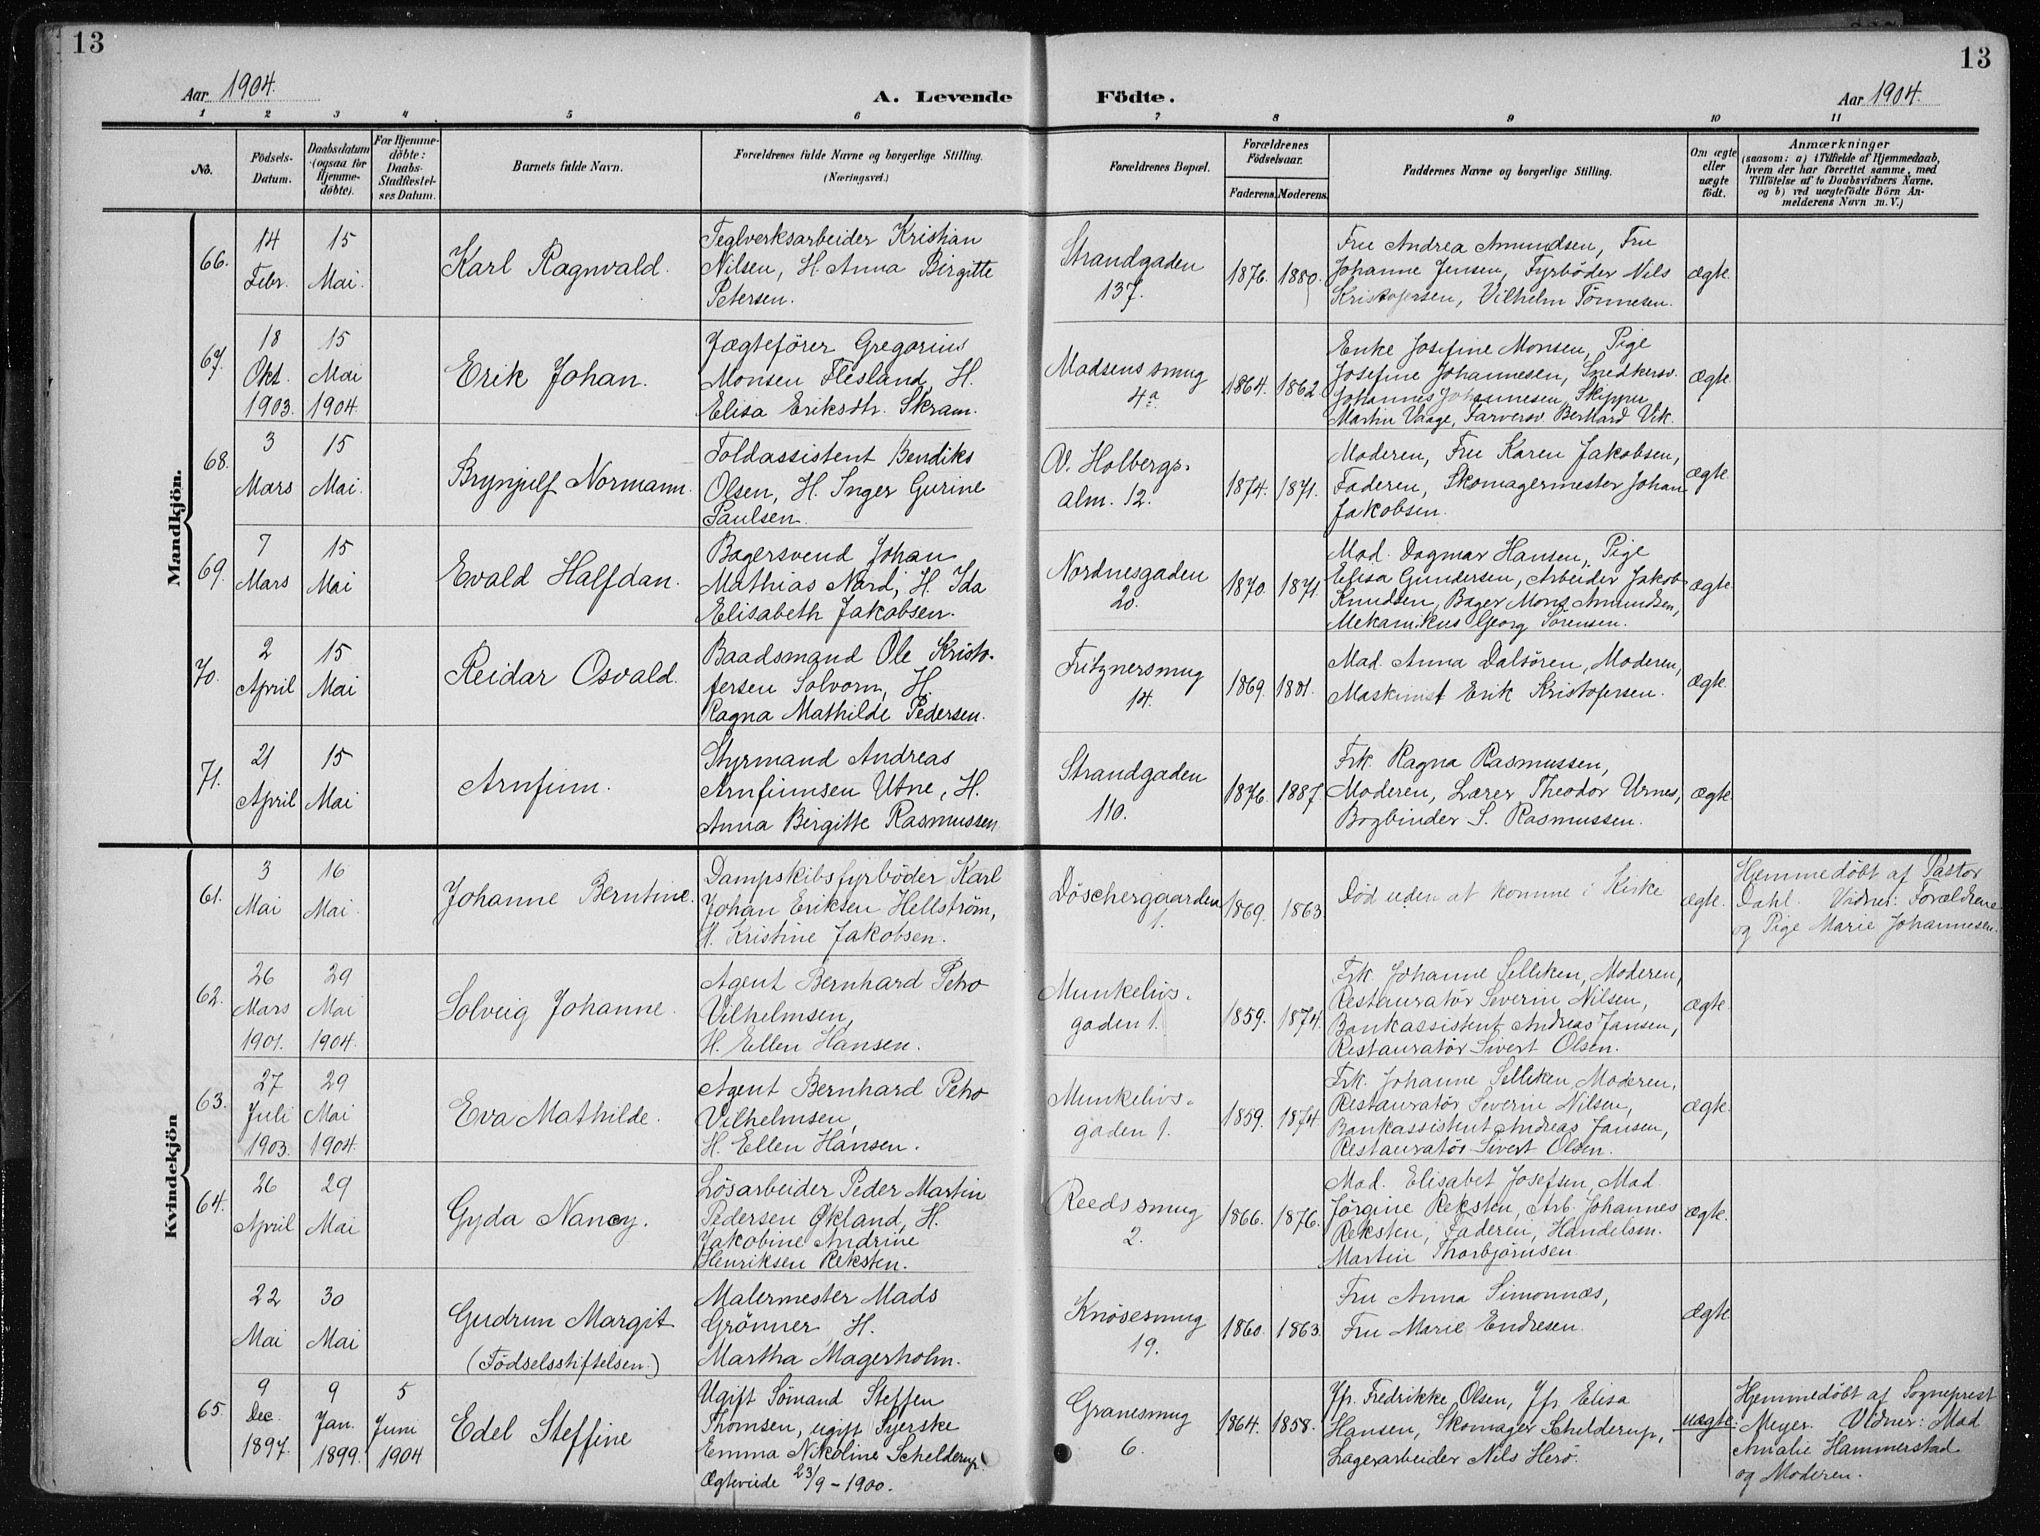 13
13
Aar 1904.
A. Levende Födte.
Aar 1904.
1 2 3 4 5 6 7 8 9 10 11
No.
Födsels-
Datum.
Daabsdatum
(ogsaa for
Hjemme-
døbte).
For Hjemme-
döbte:
Daabs-
Stadfæstel-
ses Datum.
Barnets fulde Navn.
Forældrenes fulde Navne og borgerlige Stilling.
(Næringsvei.)
Forældrenes Bopæl.
Forældrenes
Födselsaar.
Faderens. Moderens.
Faddernes Navne og borgerlige Stilling.
Om ægte
eller
uægte
født.
Anmærkninger
(saasom: a) i Tilfælde af Hjemmedaab,
hvem der har forrettet samme, med
Tilföielse af to Daabsvidners Navne,
og b) ved uægtefödte Börn An-
melderens Navn m. V.)
Mandkjön.
66.
14
Febr.
15
Mai.
Karl Ragnvald.
Teglverksarbeider Kristian
Nilsen, H. Anna Birgitte
Petersen.
Strandgaden
137.
1876. 1880.
Fru Andrea Amundsen, Fru
Johanne Jensen, Fyrbøder Nils
Kristofersen, Vilhelm Tønnesen.
ægte.
67.
18
Okt.
1903.
15
Mai
1904.
Erik Johan.
Jægtefører Gregorius
Monsen Flesland, H.
Elisa Eriksdtr. Skram.
Madsens smug
4a.
1864. 1862.
Enke Josefine Monsen, Pige
Josefine Johannesen, Snedkersv.
Johannes Johannesen, Skipper
Martin Vaage, Farversv. Bernhard Vik.
ægte.
68.
3
Mars
15
Mai.
Brynjulf Normann.
Toldassistent Bendiks
Olsen, H. Inger Gurine
Paulsen.
V. Holbergs-
alm. 12.
1874. 1871.
Moderen, Fru Karen Jakobsen,
Faderen, Skomagermester Johan
Jakobsen.
ægte.
69.
7
Mars
15
Mai
Evald Halfdan.
Bagersvend Johan
Mathias Nord, H. Ida
Elisabeth Jakobsen.
Nordnesgaden
20.
1870. 1871.
Mad. Dagmar Hansen, Pige
Elisa Gundersen, Arbeider Jakob
Knudsen, Bager Mons Amundsen,
Mekanikus Georg Sørensen.
ægte.
70.
2
April
15
Mai
Reidar Osvald.
Baadsmand Ole Kristo-
fersen Solvorn, H.
Ragna Mathilde Pedersen.
Fritznersmug
14.
1869. 1881.
Mad. Anna Dalsøren, Moderen,
Maskinist Erik Kristofersen.
ægte.
71.
21
April
15
Mai
Arnfinn.
Styrmand Andreas
Arnfinnsen Utne, H.
Anna Birgitte Rasmussen
Strandgaden
110.
1876. 1887.
Frk. Ragna Rasmussen,
Moderen, Lærer Theodor Urnes,
Bogbinder S. Rasmussen.
ægte.
Kvindekjön
61.
3
Mai
16
Mai.
Johanne Berntine.
Dampskibsfyrbøder Karl
Johan Eriksen Hellstrøm,
H. Kristine Jakobsen.
Døschergaarden
1.
1869. 1863
Død uden at komme i Kirke
ægte.
Hjemmedøbt af Pastor
Dahl. Vidner: Forældrene
og Pige Marie Johannesen.
62.
26
Mars
1901.
29
Mai
1904.
Solveig Johanne.
Agent Bernhard Petro
Vilhelmsen,
H. Ellen Hansen.
Munkelivs-
gaden 1.
1859. 1874.
Frk. Johanne Selliken, Moderen,
Restauratør Severin Nilsen,
Bankassistent Andreas Jansen,
Restauratør Sivert Olsen.
ægte.
63.
27
Juli
1903.
29
Mai
1904.
Eva Mathilde.
Agent Bernhard Petro
Vilhelmsen,
H. Ellen Hansen.
Munkelivs-
gaden 1.
1859. 1874.
Frk. Johanne Selliken, Moderen,
Restauratør Severin Nilsen,
Bankassistent Andreas Jansen,
Restauratør Sivert Olsen.
ægte.
64.
26
April
29
Mai
Gyda Nancy.
Løsarbeider Peder Martin
Pedersen Økland, H.
Jakobine Andrine
Henriksen Reksten.
Reedssmug
2.
1866. 1876.
Mad. Elisabet Josefsen, Mad.
Jørgine Reksten, Arb. Johannes
Reksten, Faderen, Handelsm.
Martin Thorbjørnsen
ægte.
22
Mai
30
Mai
Gudrun Margit
(Fødselsstiftelsen.)
Malermester Mads
Grønner, H.
Martha Magerholm.
Knøsesmug
19.
1860. 1863.
Fru Anna Simonnæs,
Fru Marie Endresen.
ægte.
65.
9
Dec.
1897.
9
Jan.
1899.
5
Juni
1904
Edel Steffine
Ugift Sømand Steffen
Thomsen, ugift Syerske
Emma Nikoline Schelderup.
Ægteviede 23/9-1900.
Granesmug
6.
1864. 1858.
Jfr. Fredrikke Olsen, Jfr. Elisa
Hansen, Skomager Schelderup,
Lagerarbeider Nils Herø.
uægte.
Hjemmedøbt af Sogneprest
Meyer. Vidner: Mad.
Amalie Hammerstad
og Moderen.